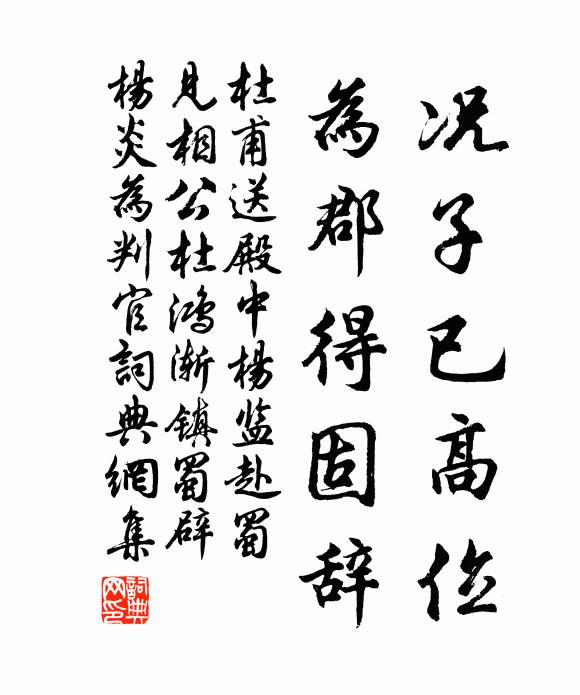 况子已高位
為郡得固辞
杜甫送殿中楊监赴蜀
見相公杜鴻渐鎮蜀辟
楊炎為判官詞典網集
詞典
网印